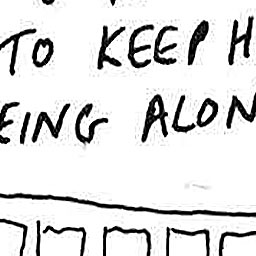 TO KEEP H
EING ALON